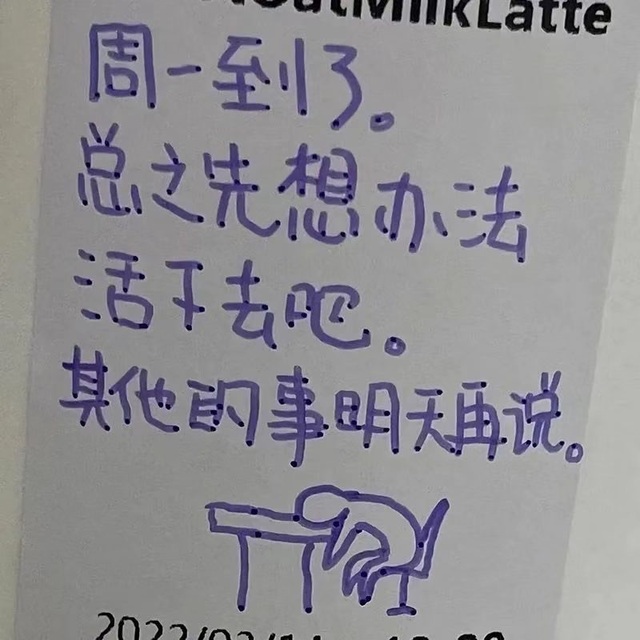 OatMilkLatte
周一到了。
总之先想办法
活下去吧。
其他的事明天再说。